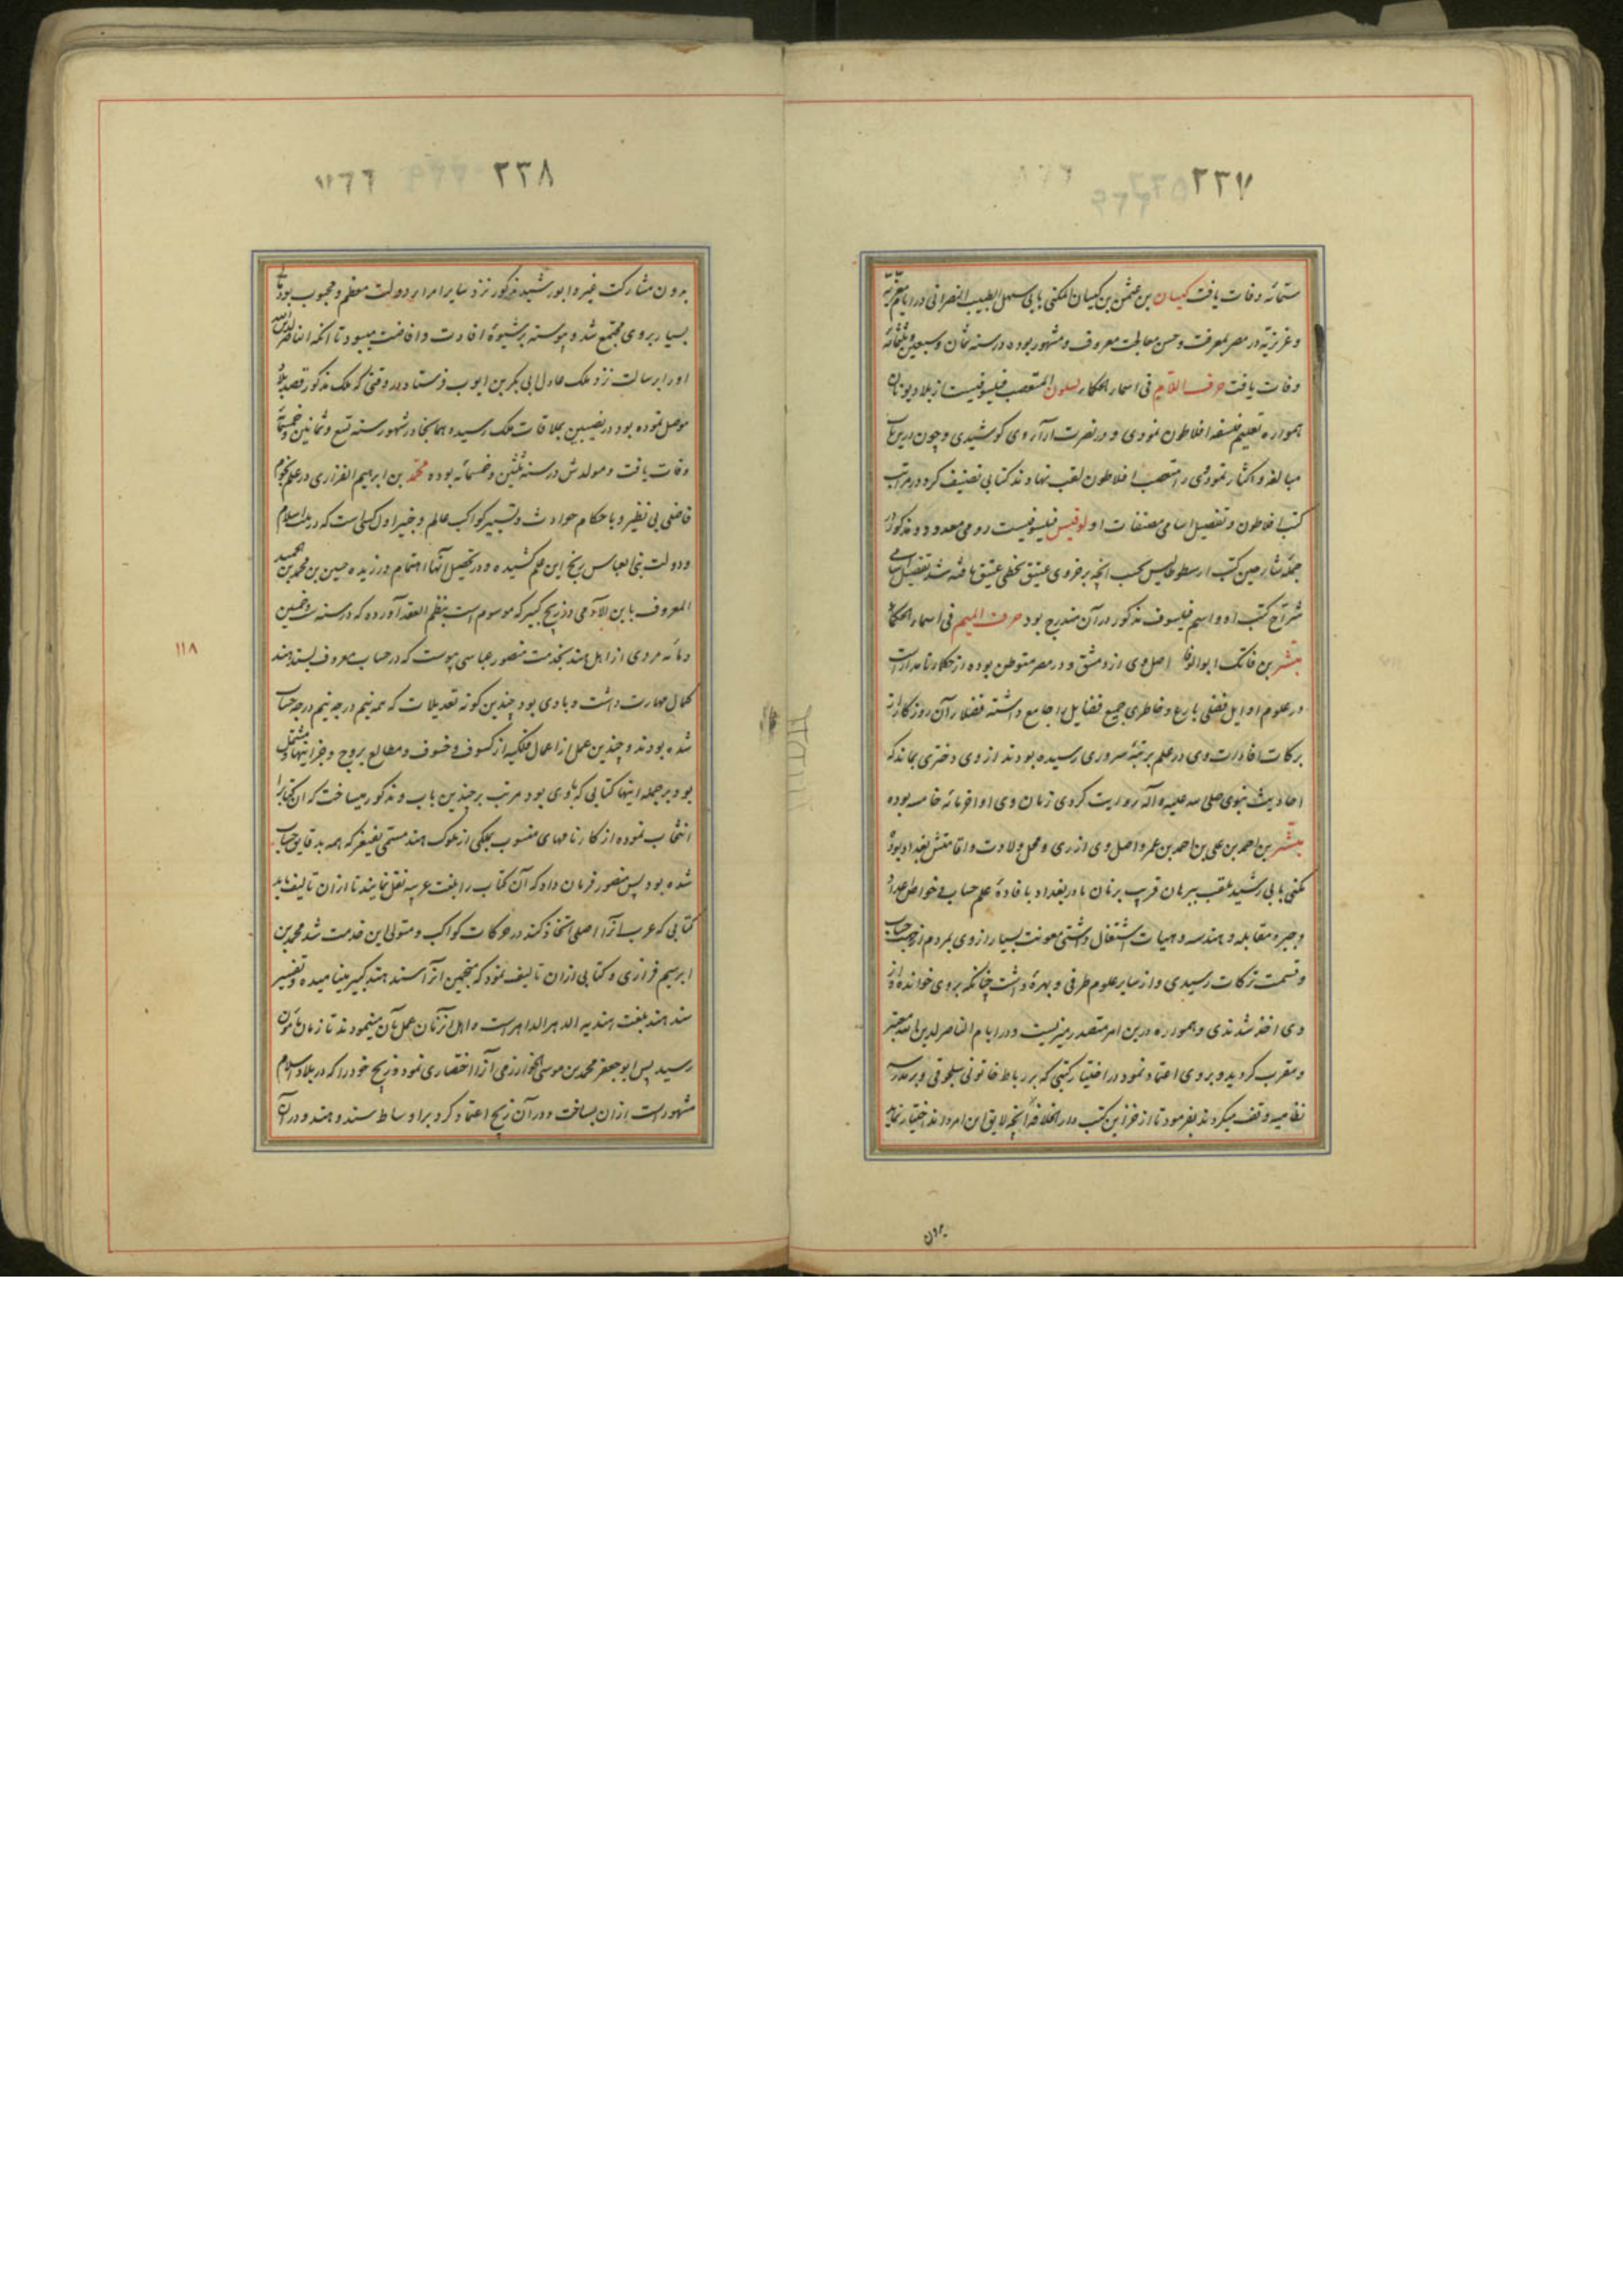 ٢٣٧
ستمائه وفات یافت کیسان بن عثمن بن کیسان المکنی بابی سهل الطبیب النصرانی در ایام معزیه
و عزیزیه در مصر بمعرفت و حسن معالجت معروف و مشهور بوده در سنه ثمان و سبعین و ثلثمائه
وفات یافت حرف اللام فی اسماء الحکماء لسلون المتعصب فیلسوفیست از بلاد یونان
همواره تعلیم فلسفه افلاطون نمودی و در نصرت آراء وی کوشیدی و چون درین باب
مبالغه و اکثار نمودی را متعصب افلاطون لقب نهادند کتابی تصنیف کرد در مراتب
کتب افلاطون و تفصیل اسامی مصنفات او لوقیس فیلسوفیست رومی معدود و مذکور از
جمله شارحین کتب ارسطوطالیس بحسب آنچه بر خروی عتیق بخطی عتیق یافته شد تفصیل اسامی
شراح کتب او و اسم فیلسوف مذکور در آن مندرج بود حرف المیم فی اسماء الحکماء
مبشر بن فاتک ابوالوفا اصل وی از دمشق و در مصر متوطن بوده از حکماء نامدار است
در علوم اوایل فضلی بارع و خاطری جمیع فضایل را جامع داشته فضلاء آن روزکار از
برکات افادات وی در علم برتبه سروری رسیده بودند از وی دختری بماند که
احادیث نبوی صلی الله علیه و آله روایت کردی زمان وی اواخر مائه خامسه بوده
مبشر بن احمد بن علی بن احمد بن عمرو اصل وی از ری و محل ولادت و اقامتش بغداد بود
مکنی بابی رشید ملقب ببرهان قریب برنان بادر بغداد بافادهٔ علم حساب و خواص اعداد
و جبر و مقابله و هندسه و هیات اشتغال داشتی معونت بسیار از وی بمردم از جهت حساب
و قسمت ترکات رسیدی و از سایر علوم طرفی و بهرهٔ داشت چنانکه بروی خوانده و از
وی اخذ شدندی و همواره درین امر متصدر میزیست و در ایام الناصر لدین الله معتبر
و مقرب کردید و بروی اعتماد نمود در اختیار کتبی که بر رباط خاتونی سلجوقی و بر مدرسه
نظامیه وقف میکردند بفرمود تا از خزاین کتب دار الخلافه آنچه لایق این امر داند اختیار نماید
بدون
٢٣٨
بدون مشارکت غیر و ابو رشید مذکور نزد سایر امراء دولت معظم و محبوب بود تا
بسیار بروی مجتمع شد و پیوسته بر شیوهٔ افادت و افاضت میبود تا آنکه الناصر لدین الله
او را برسالت نزد ملک عادل ابی بکر بن ایوب فرستاد در وقتی که ملک مذکور قصد بلاد
موصل نموده بود در نصیبین بملاقات ملک رسید و همانجا در شهور سنه تسع و ثمانین و خمسمائه
وفات یافت و مولدش در سنه ثلثین و خمسمائه بوده محمد بن ابراهیم الفزاری در علم نجوم
فاضلی بی نظیر و باحکام حوادث و تسییر کواکب عالم و خبیر اول کسی است که در ملت اسلام
و دولت بنی العباس رنج این علم کشیده و در تحصیل آنها اهتمام ورزیده حسین بن محمد بن الحمید
المعروف بابن الآدمی در زیج کبیر که موسوم است بنظم العقد آورده که در سنه ست و خمسین
و مائه مردی از اهل هند بخدمت منصور عباسی پیوست که در حساب معروف بسند هند
کمال مهارت داشت و با وی بود چندین کونه تعدیلات که همه نیم درجه نیم درجه حساب
شده بودند و چندین عمل از اعمال فلکیه از کسوف و خسوف و مطالع بروج و جز اینها و مشتمل
بود بر جمله اینها کتابی که با وی بود مرتب بر چندین باب و مذکور میساخت که ان کتاب را
انتخاب نموده از کارنامهای منسوب بملکی از ملوک هند مسمی بفیغر که همه بدقایق حساب
شده بود پس منصور فرمان داد که آن کتاب را بلغت عربیه نقل نمایند تا از ان تالیف یابد
کتابی که عرب آنرا اصلی اتخاذ کنند در حرکات کواکب و متولی این خدمت شد محمد بن
ابرهیم فزاری و کتابی از ان تالیف نمود که منجمین انرا سند هند کبیر مینامیده و تفسیر
سند هند بلغت هندیه الدهر الداهر است و اهل انزمان عمل بآن مینمودند تا زمان مأمون
رسید پس ابو جعفر محمد بن موسی الخوارزمی آنرا اختصاری نمود و زیج خود را که در بلاد اسلام
مشهور است از ان بساخت و در آن زیج اعتماد کرد بر اوساط سند و هند و در آن
١١٨